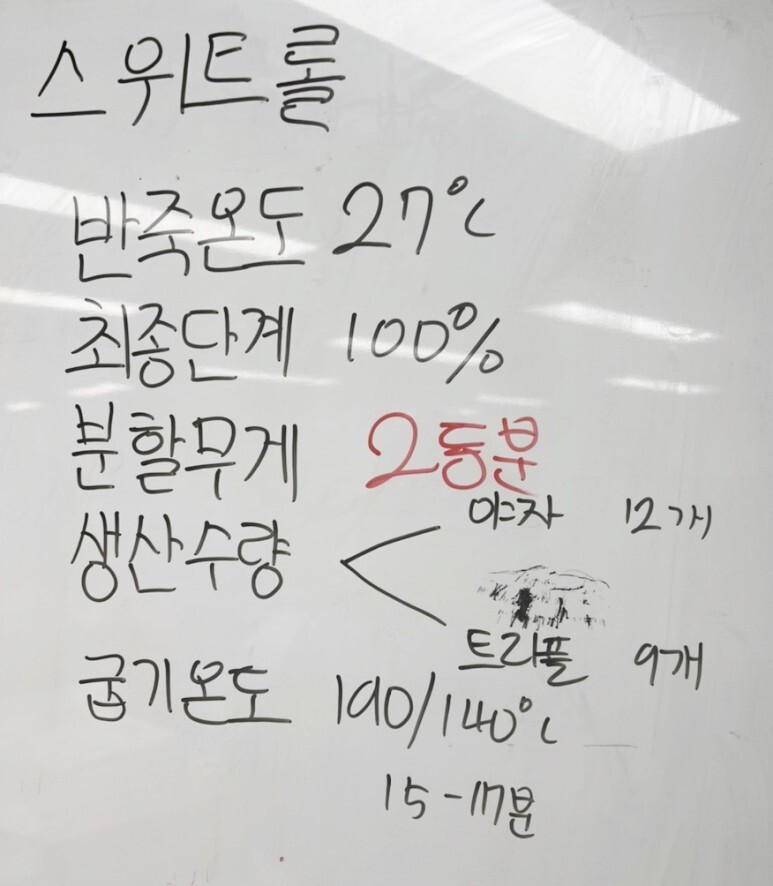 스위트롤
반죽온도 27℃
최종단계 100%
분할무게 2등분
생산수량 < 야자 12개
트리플 9개
굽기온도 190/140℃
15-17분